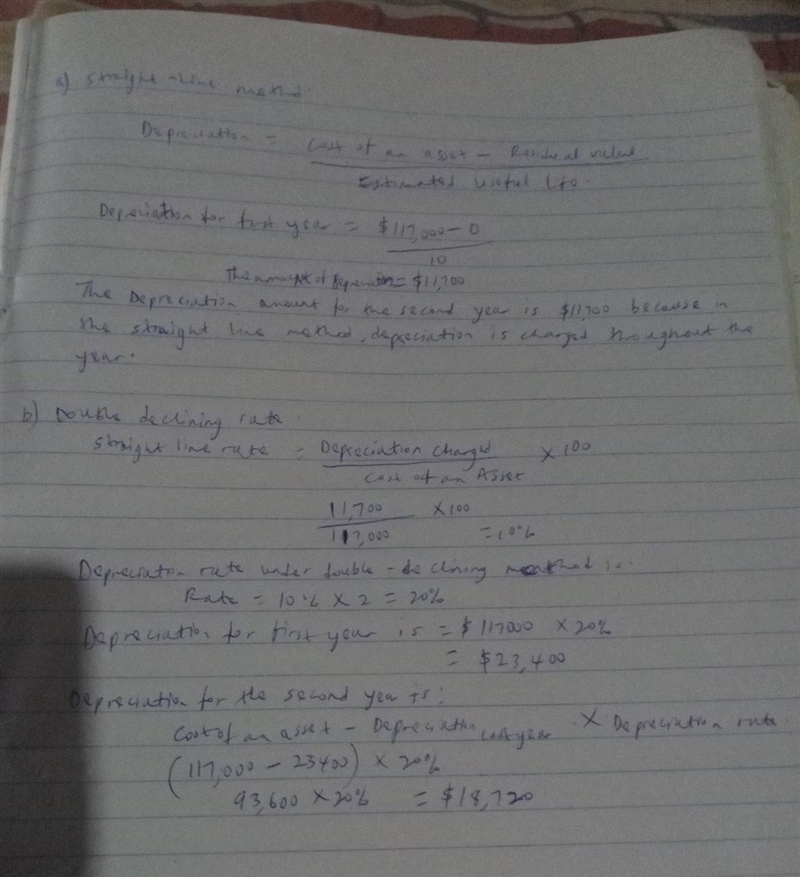 a) Straight-line method.
Depreciation = Cost of an asset - Residual value
Estimated Useful life.
Depreciation for first year = $117,000 - 0
10
The amount of Depreciation = $11,700
The Depreciation amount for the second year is $11,700 because in
the straight line method, depreciation is charged throughout the
year.
b) Double declining rate.
straight line rate = Depreciation charged × 100
Cost of an Asset
11,700 × 100
117,000 = 10%
Depreciation rate under double-declining method is.
Rate = 10% × 2 = 20%
Depreciation for first year is = $117000 × 20%
= $23,400
Depreciation for the second year is:
Cost of an asset - Depreciation last year × Depreciation rate.
(117,000 - 23400) × 20%
93,600 × 20% = $18,720